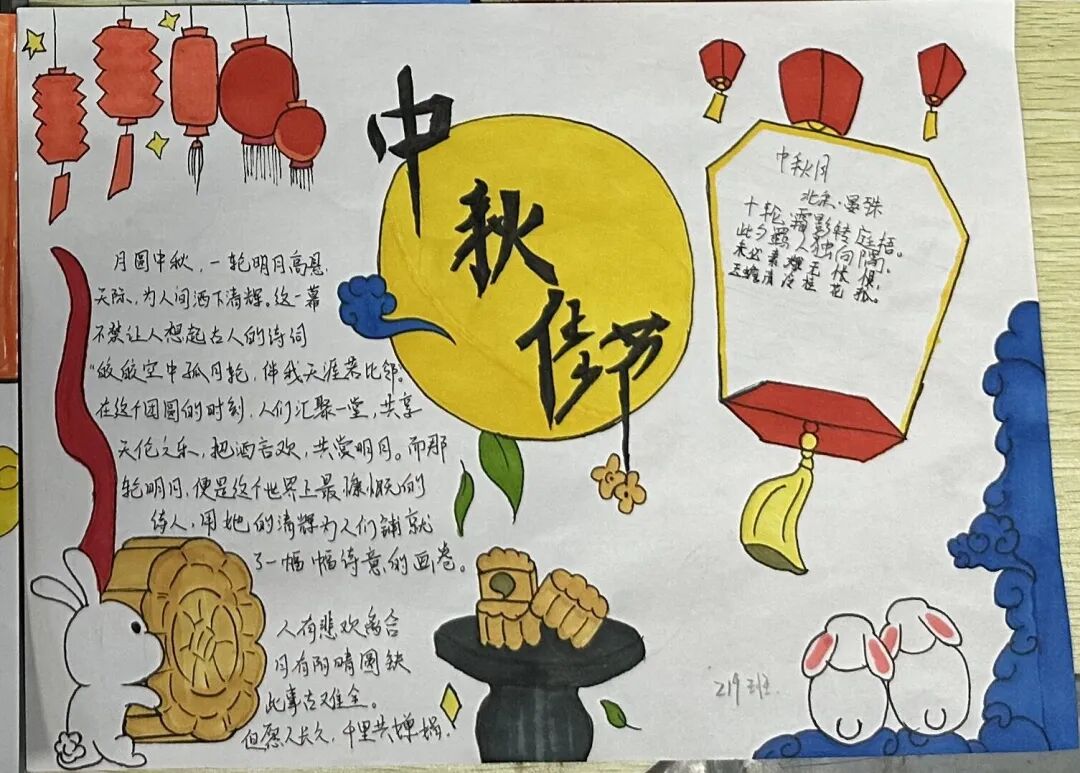 中秋佳节
月圆中秋，一轮明月高悬
天际，为人间洒下清辉。这一幕
不禁让人想起古人的诗词
“皎皎空中孤月轮，伴我天涯若比邻。
在这个团圆的时刻，人们汇聚一堂，共享
天伦之乐，把酒言欢，共赏明月。而那
轮明月，便是这个世界上最慷慨的
诗人，用她的清辉为人们铺就
了一幅幅诗意的画卷。
人有悲欢离合
月有阴晴圆缺
此事古难全。
但愿人长久，千里共婵娟，
中秋月
北宋·晏殊
十轮霜影转庭梧。
此夕羁人独向隅。
未必素娥无怅恨，
玉蟾清冷桂花孤。
219班